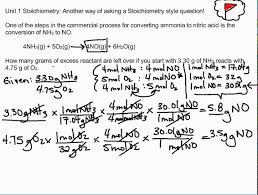 Unit 1 Stoichiometry: Another way of asking a Stoichiometry style question!
One of the steps in the commercial process for converting ammonia to nitric acid is the
conversion of NH₃ to NO.
4NH₃(g) + 5O₂(g) → 4NO(g) + 6H₂O(g)
How many grams of excess reactant are left over if you start with 3.30 g of NH₃ reacts with
4.75 g of O₂.
4mol NH₃ : 4mol NO
1mol NH₃ = 17.04g
Given: 3.30g NH₃
5mol O₂ : 4mol NO
1mol O₂ = 32g
4.75g O₂
4mol NH₃ : 5mol O₂
1mol NO = 30.01g
3.30g NH₃ × 1mol NH₃ / 17.04g NH₃ × 4mol NO / 4mol NH₃ × 30.01g NO / 1mol NO = 5.8g NO
4.75g O₂ × 1mol O₂ / 32g O₂ × 4mol NO / 5mol O₂ × 30.01g NO / 1mol NO = 3.5g NO